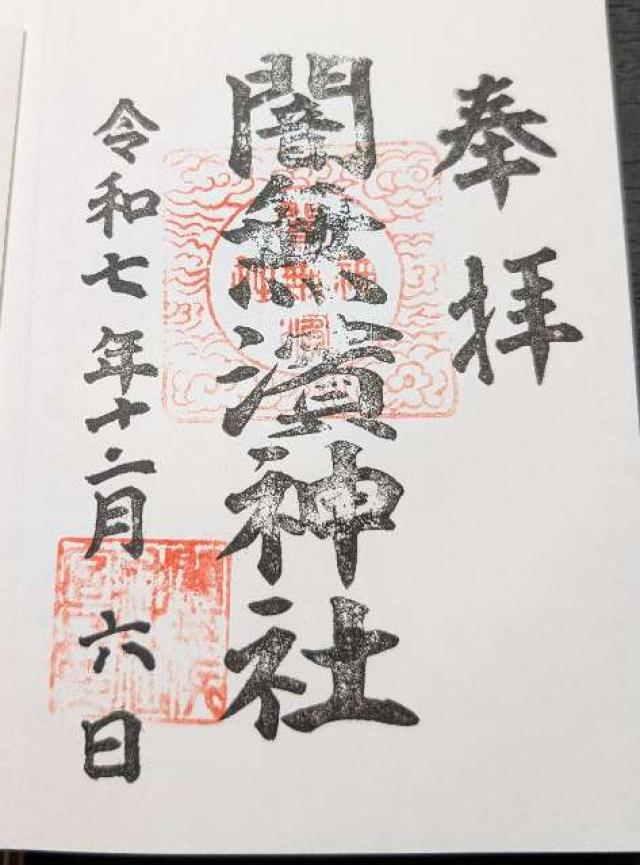 奉拝
闇無濱神社
令和七年十二月六日